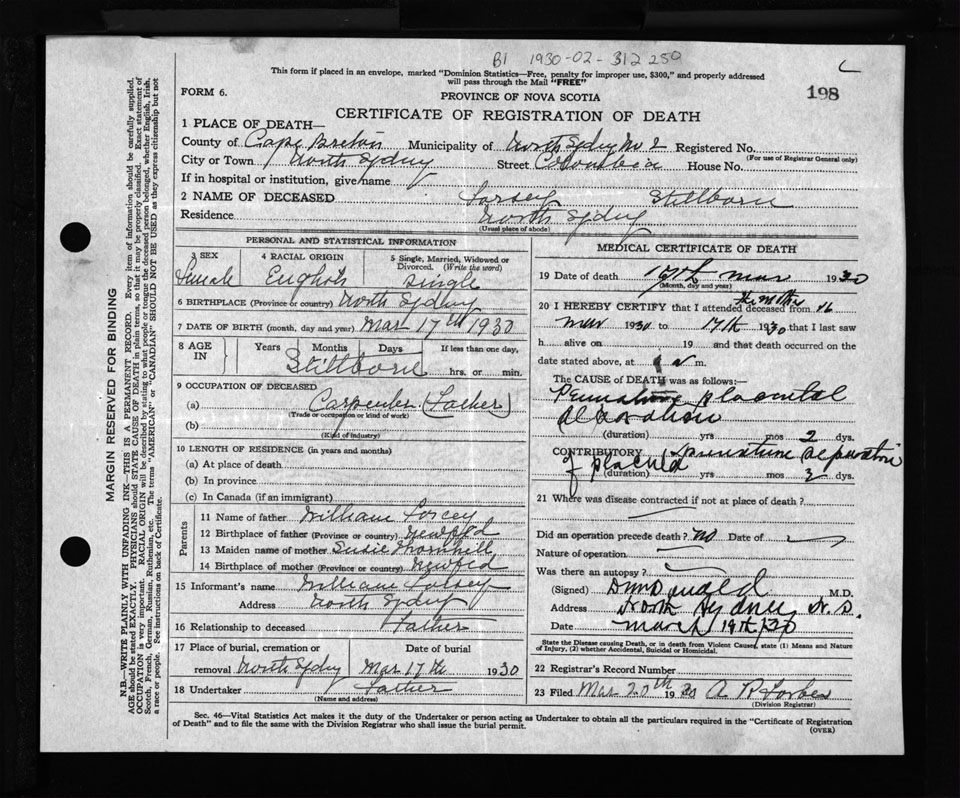 B1 1930-02-312250
This form if placed in an envelope, marked "Dominion Statistics—Free, penalty for improper use, $300," and properly addressed
will pass through the Mail "FREE"
FORM 6.
PROVINCE OF NOVA SCOTIA
198
CERTIFICATE OF REGISTRATION OF DEATH
1 PLACE OF DEATH—
County of Cape Breton Municipality of North Sydney No 2 Registered No.
(For use of Registrar General only)
City or Town North Sydney Street Columbia House No.
If in hospital or institution, give name
2 NAME OF DECEASED Forsey Stillborn
Residence North Sydney
(Usual place of abode)
PERSONAL AND STATISTICAL INFORMATION
3 SEX 4 RACIAL ORIGIN 5 Single, Married, Widowed or
Divorced. (Write the word)
Female English Single
6 BIRTHPLACE (Province or country) North Sydney
7 DATE OF BIRTH (month, day and year) Mar 17th 1930
8 AGE IN Years Months Days If less than one day,
Stillborn hrs. or min.
9 OCCUPATION OF DECEASED
(a) Carpenter (Father)
(Trade or occupation or kind of work)
(b)
(Kind of industry)
10 LENGTH OF RESIDENCE (in years and months)
(a) At place of death
(b) In province
(c) In Canada (if an immigrant)
Parents
11 Name of father William Forsey
12 Birthplace of father (Province or country) Newfld
13 Maiden name of mother Susie Thornhill
14 Birthplace of mother (Province or country) Newfld
15 Informant's name William Forsey
Address North Sydney
16 Relationship to deceased Father
17 Place of burial, cremation or Date of burial
removal North Sydney Mar 17th 1930
18 Undertaker Father
(Name and address)
MEDICAL CERTIFICATE OF DEATH
19 Date of death 17th Mar 1930
(Month, day and year)
20 I HEREBY CERTIFY that I attended deceased from 16
the mother
Mar 1930 to 17th 1930 that I last saw
h alive on , 19 and that death occurred on the
date stated above, at m.
The CAUSE of DEATH was as follows:—
Premature placental
separation
(duration) yrs mos 2 dys.
CONTRIBUTORY Premature separation
of placenta
(duration) yrs mos 2 dys.
21 Where was disease contracted if not at place of death?
Did an operation precede death? no Date of
Nature of operation
Was there an autopsy?
(Signed) M.D.
Address North Sydney N.S.
Date March 19th/30
State the Disease causing Death, or in death from Violent Causes, state (1) Means and Nature
of Injury, (2) whether Accidental, Suicidal or Homicidal.
22 Registrar's Record Number
23 Filed Mar 20th 1930 A R Forbes
(Division Registrar)
Sec. 46—Vital Statistics Act makes it the duty of the Undertaker or person acting as Undertaker to obtain all the particulars required in the "Certificate of Registration
of Death" and to file the same with the Division Registrar who shall issue the burial permit.
(OVER)
MARGIN RESERVED FOR BINDING
N.B.—WRITE PLAINLY WITH UNFADING INK—THIS IS A PERMANENT RECORD. Every item of information should be carefully supplied.
AGE should be stated EXACTLY. PHYSICIANS should STATE CAUSE OF DEATH in plain terms, so that it may be properly classified. Exact statement of
OCCUPATION is very important. RACIAL ORIGIN will be described by stating to what people or tongue the deceased person belonged, whether English, Irish,
Scotch, French, German, Russian, Ruthenian, etc. The terms "AMERICAN" or "CANADIAN" SHOULD NOT BE USED as they express citizenship but not
a race or people. See instructions on back of Certificate.